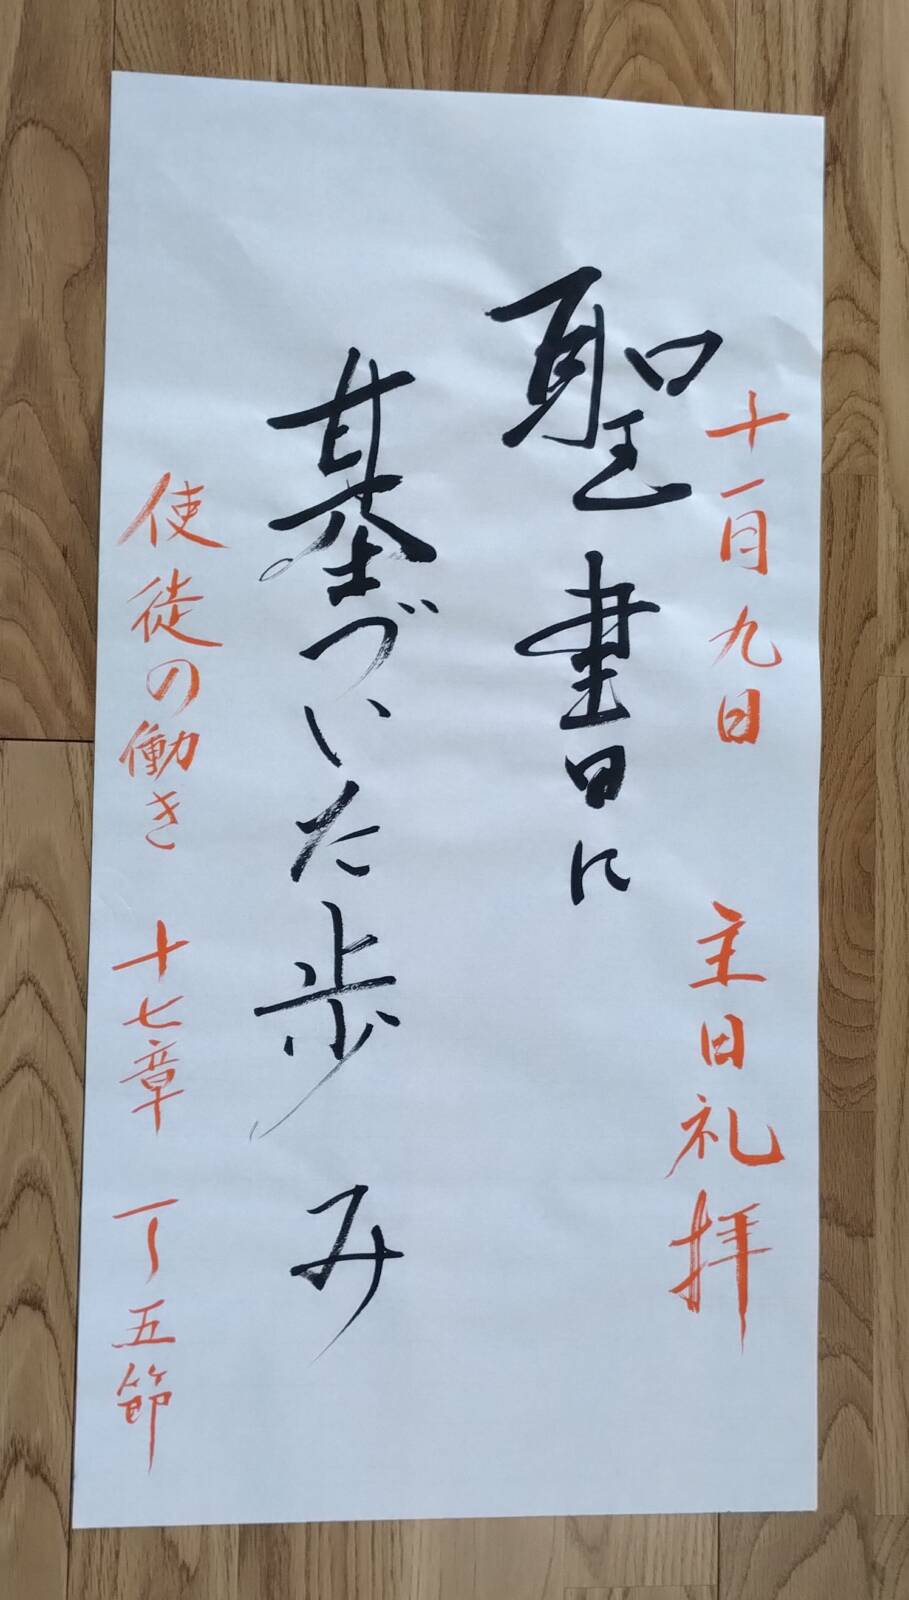 十一月九日 主日礼拝
聖書に
基づいた歩み
使徒の働き 十七章 一〜五節